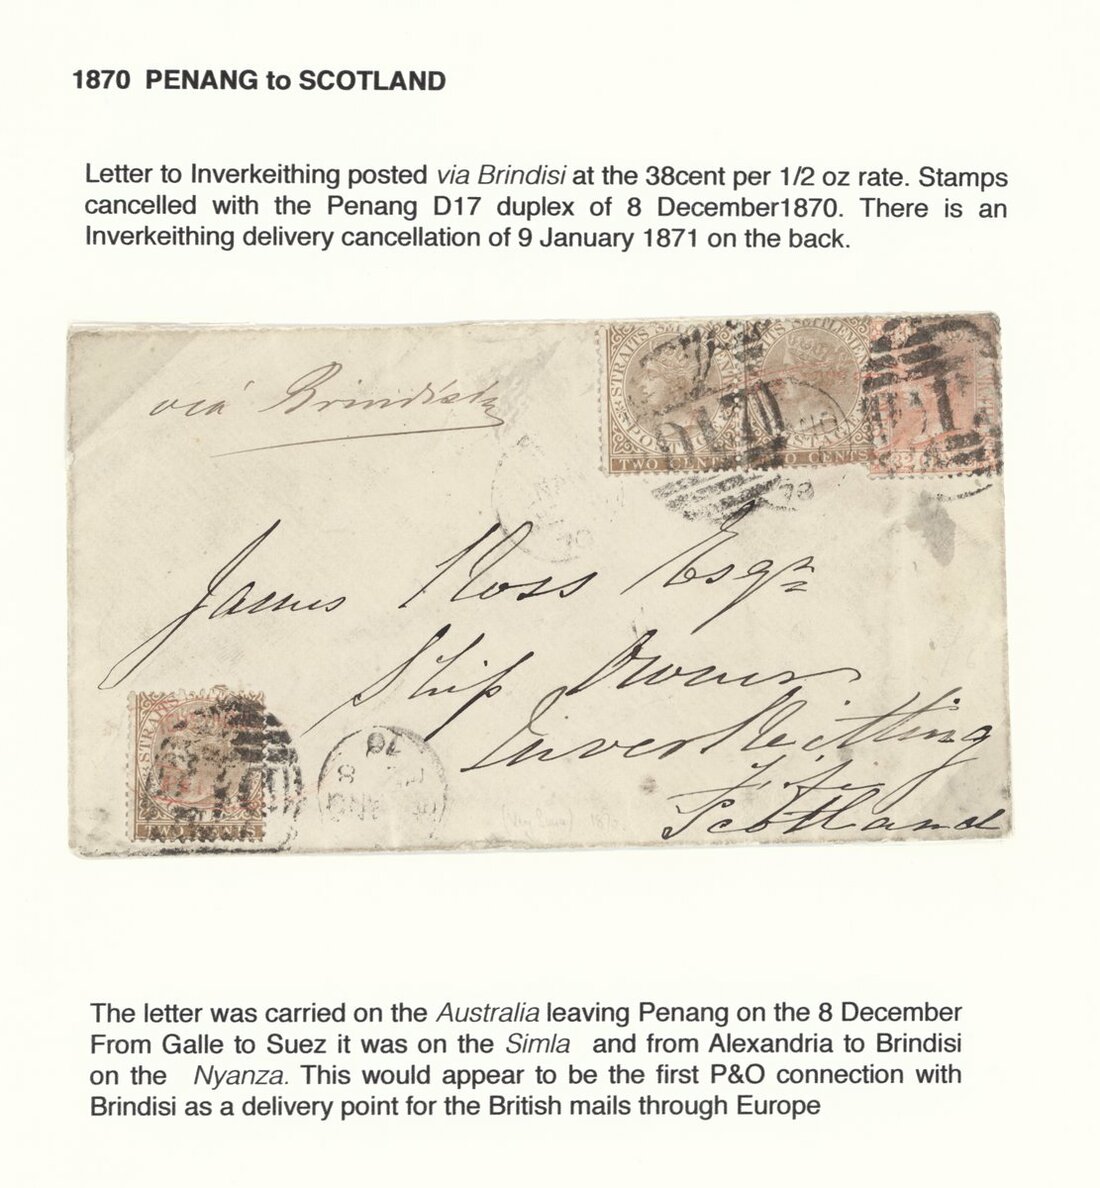 1870 PENANG to SCOTLAND
Letter to Inverkeithing posted via Brindisi at the 38cent per 1/2 oz rate. Stamps
cancelled with the Penang D17 duplex of 8 December1870. There is an
Inverkeithing delivery cancellation of 9 January 1871 on the back.
viá Brindisi
STRAITS SETTLEMENTS POSTAGE TWO CENTS
STRAITS SETTLEMENTS POSTAGE TWO CENTS
D17
James Ross Esqr
Ship Owner
Inverkeithing
Fife
Scotland
STRAITS
TWO CENTS
PENANG
8
70
The letter was carried on the Australia leaving Penang on the 8 December
From Galle to Suez it was on the Simla and from Alexandria to Brindisi
on the Nyanza. This would appear to be the first P&O connection with
Brindisi as a delivery point for the British mails through Europe